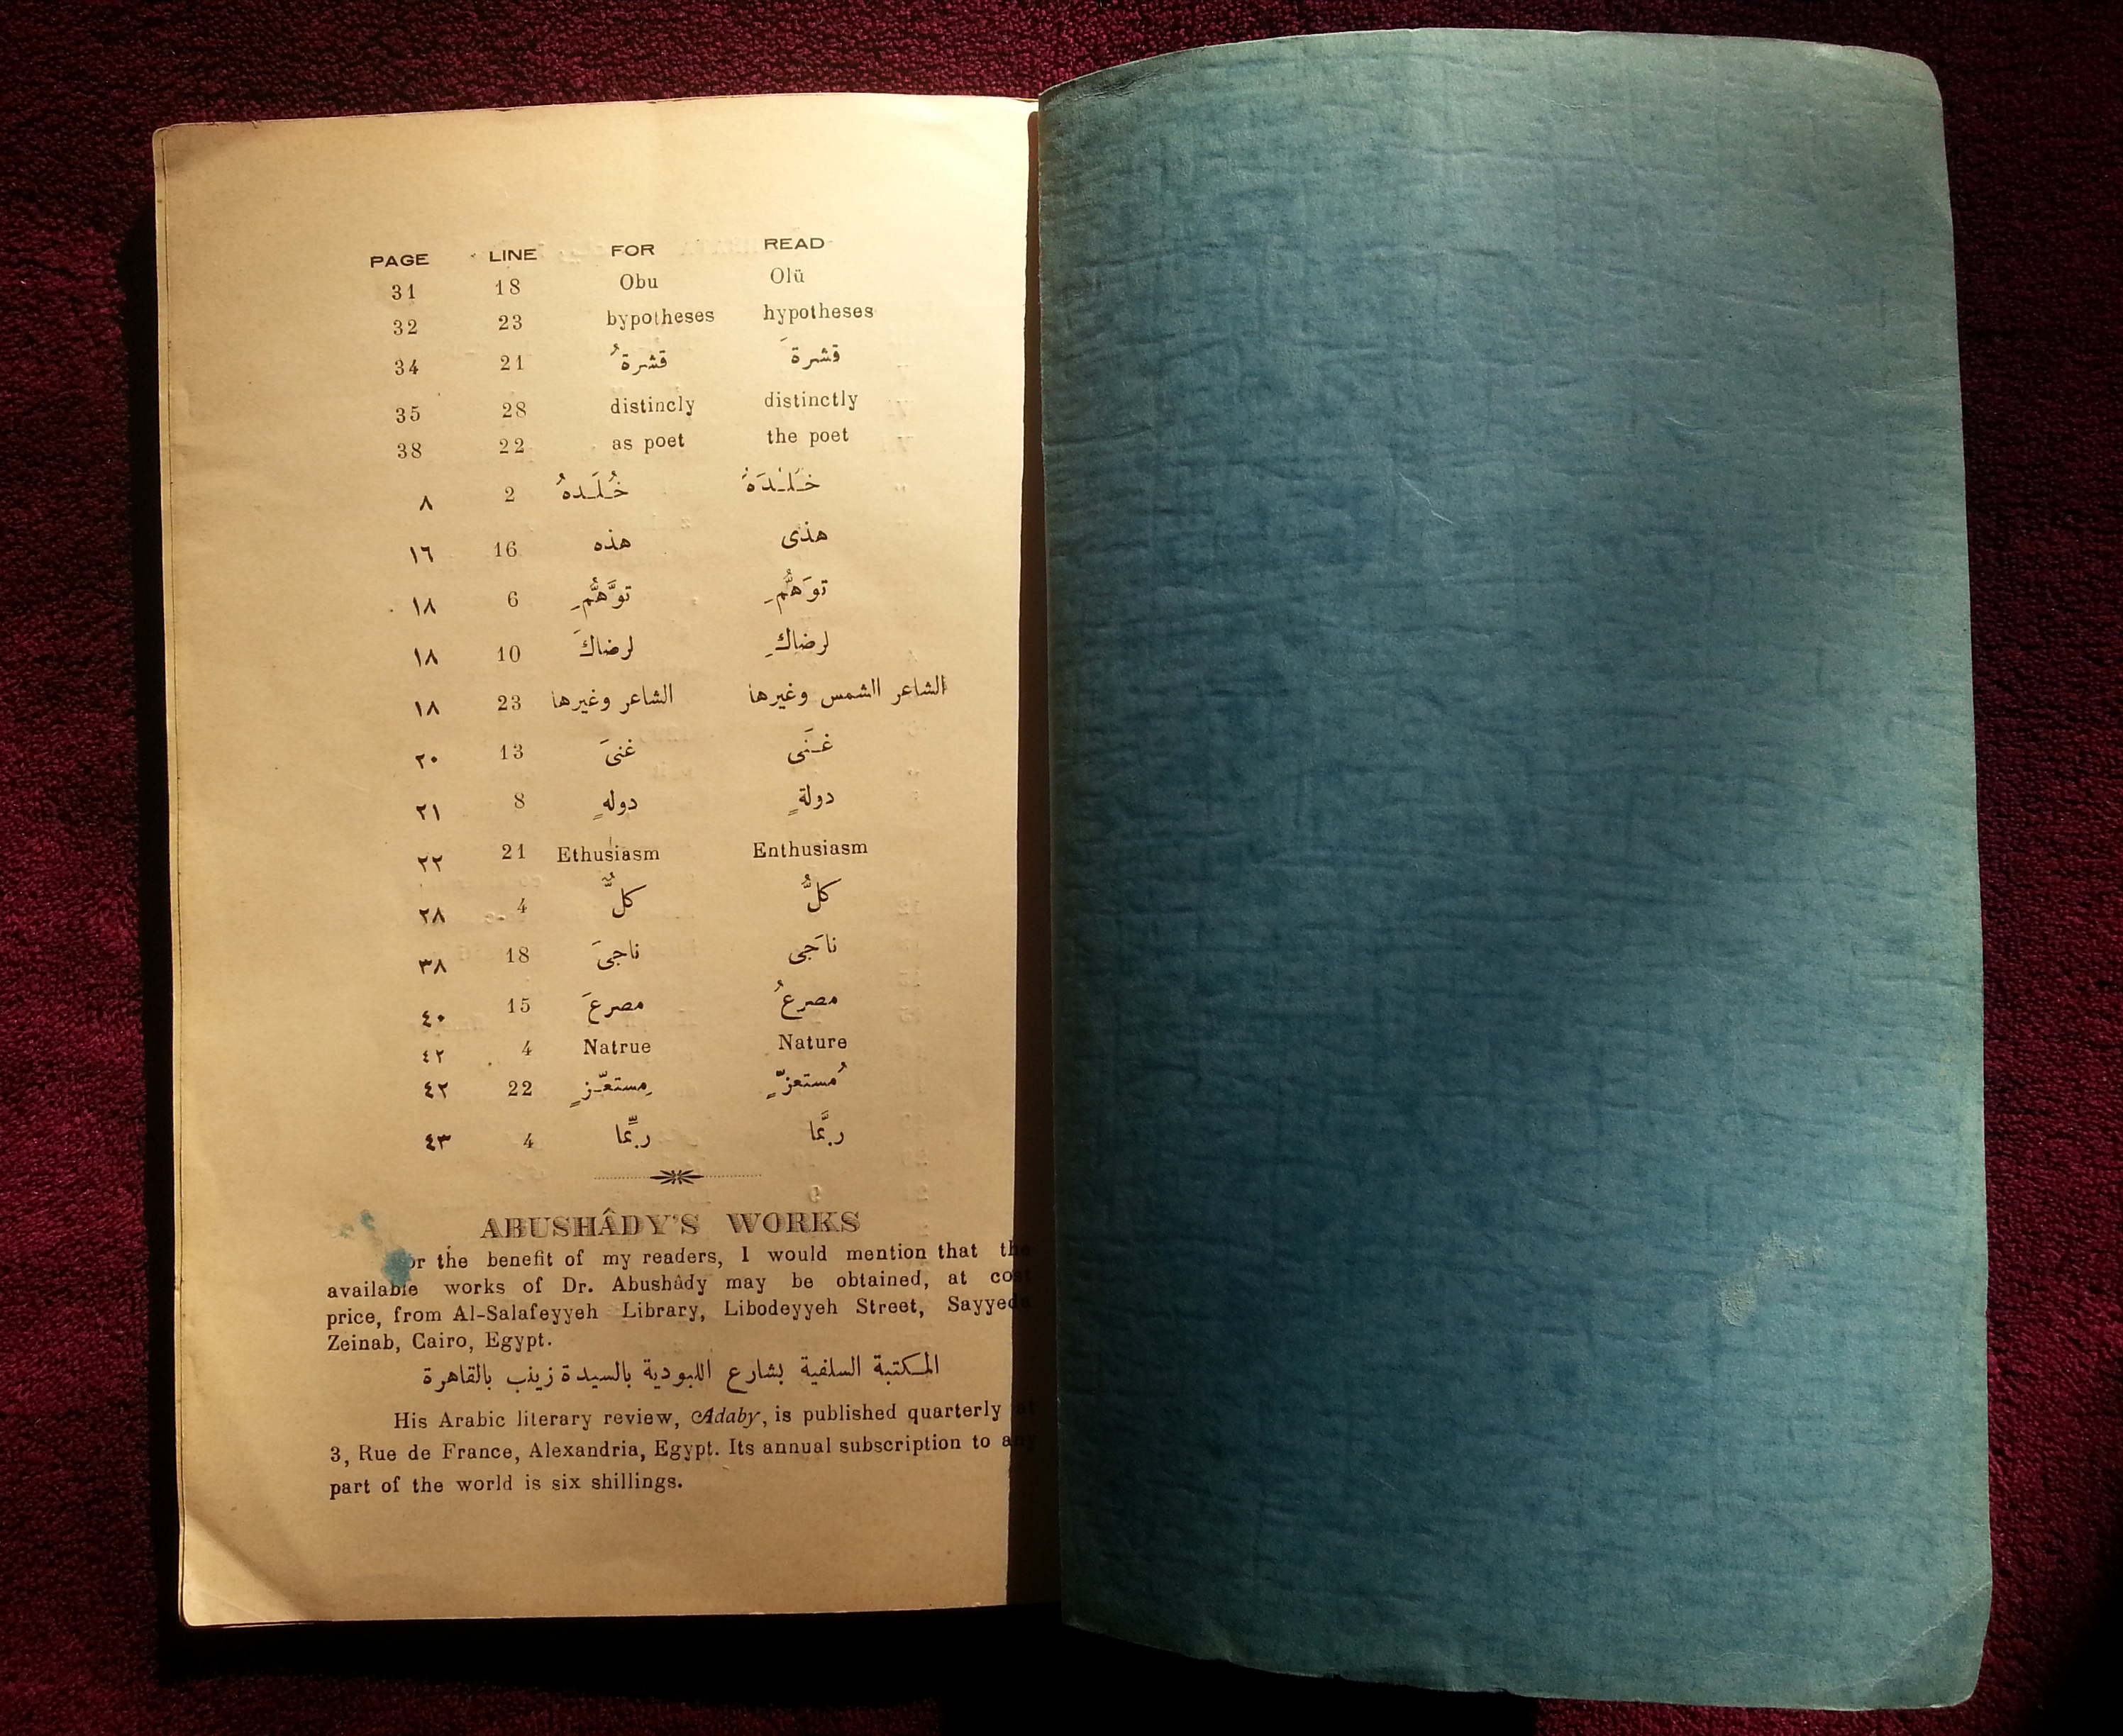 PAGE LINE FOR READ
31 18 Obu Olü
32 23 bypotheses hypotheses
34 21 قشرةُ قشرةَ
35 28 distincly distinctly
38 22 as poet the poet
٨ 2 خُـلَـدهُ خَـلْـدَهُ
١٦ 16 هذه هذى
١٨ 6 توَّهُّمِ توَهُّمِ
١٨ 10 لرضاكَ لرضاكِ
١٨ 23 الشاعر وغيرها الشاعر االشمس وغيرها
٢٠ 13 غنىَ غـنَى
٢١ 8 دولهٍ دولةٍ
٢٢ 21 Ethusiasm Enthusiasm
٢٨ 4 كلُّ كلُّ
٣٨ 18 ناجىَ ناجَى
٤٠ 15 مصرعَ مصرعُ
٤٢ 4 Natrue Nature
٤٢ 22 مِستعـّزٍ مُستعزّ ٍ
٤٣ 4 ربِّما ربَّما
ABUSHÂDY'S WORKS
or the benefit of my readers, I would mention that the
available works of Dr. Abushâdy may be obtained, at cost
price, from Al-Salafeyyeh Library, Libodeyyeh Street, Sayyeda
Zeinab, Cairo, Egypt.
المكتبة السلفية بشارع اللبودية بالسيدة زينب بالقاهرة
His Arabic literary review, Adaby, is published quarterly at
3, Rue de France, Alexandria, Egypt. Its annual subscription to any
part of the world is six shillings.